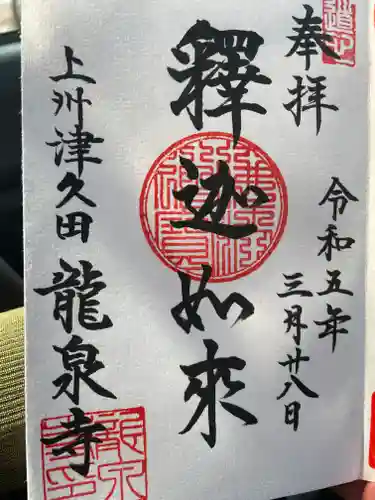 奉拝
令和五年
三月廿八日
釋迦如来
上州津久田
龍泉寺